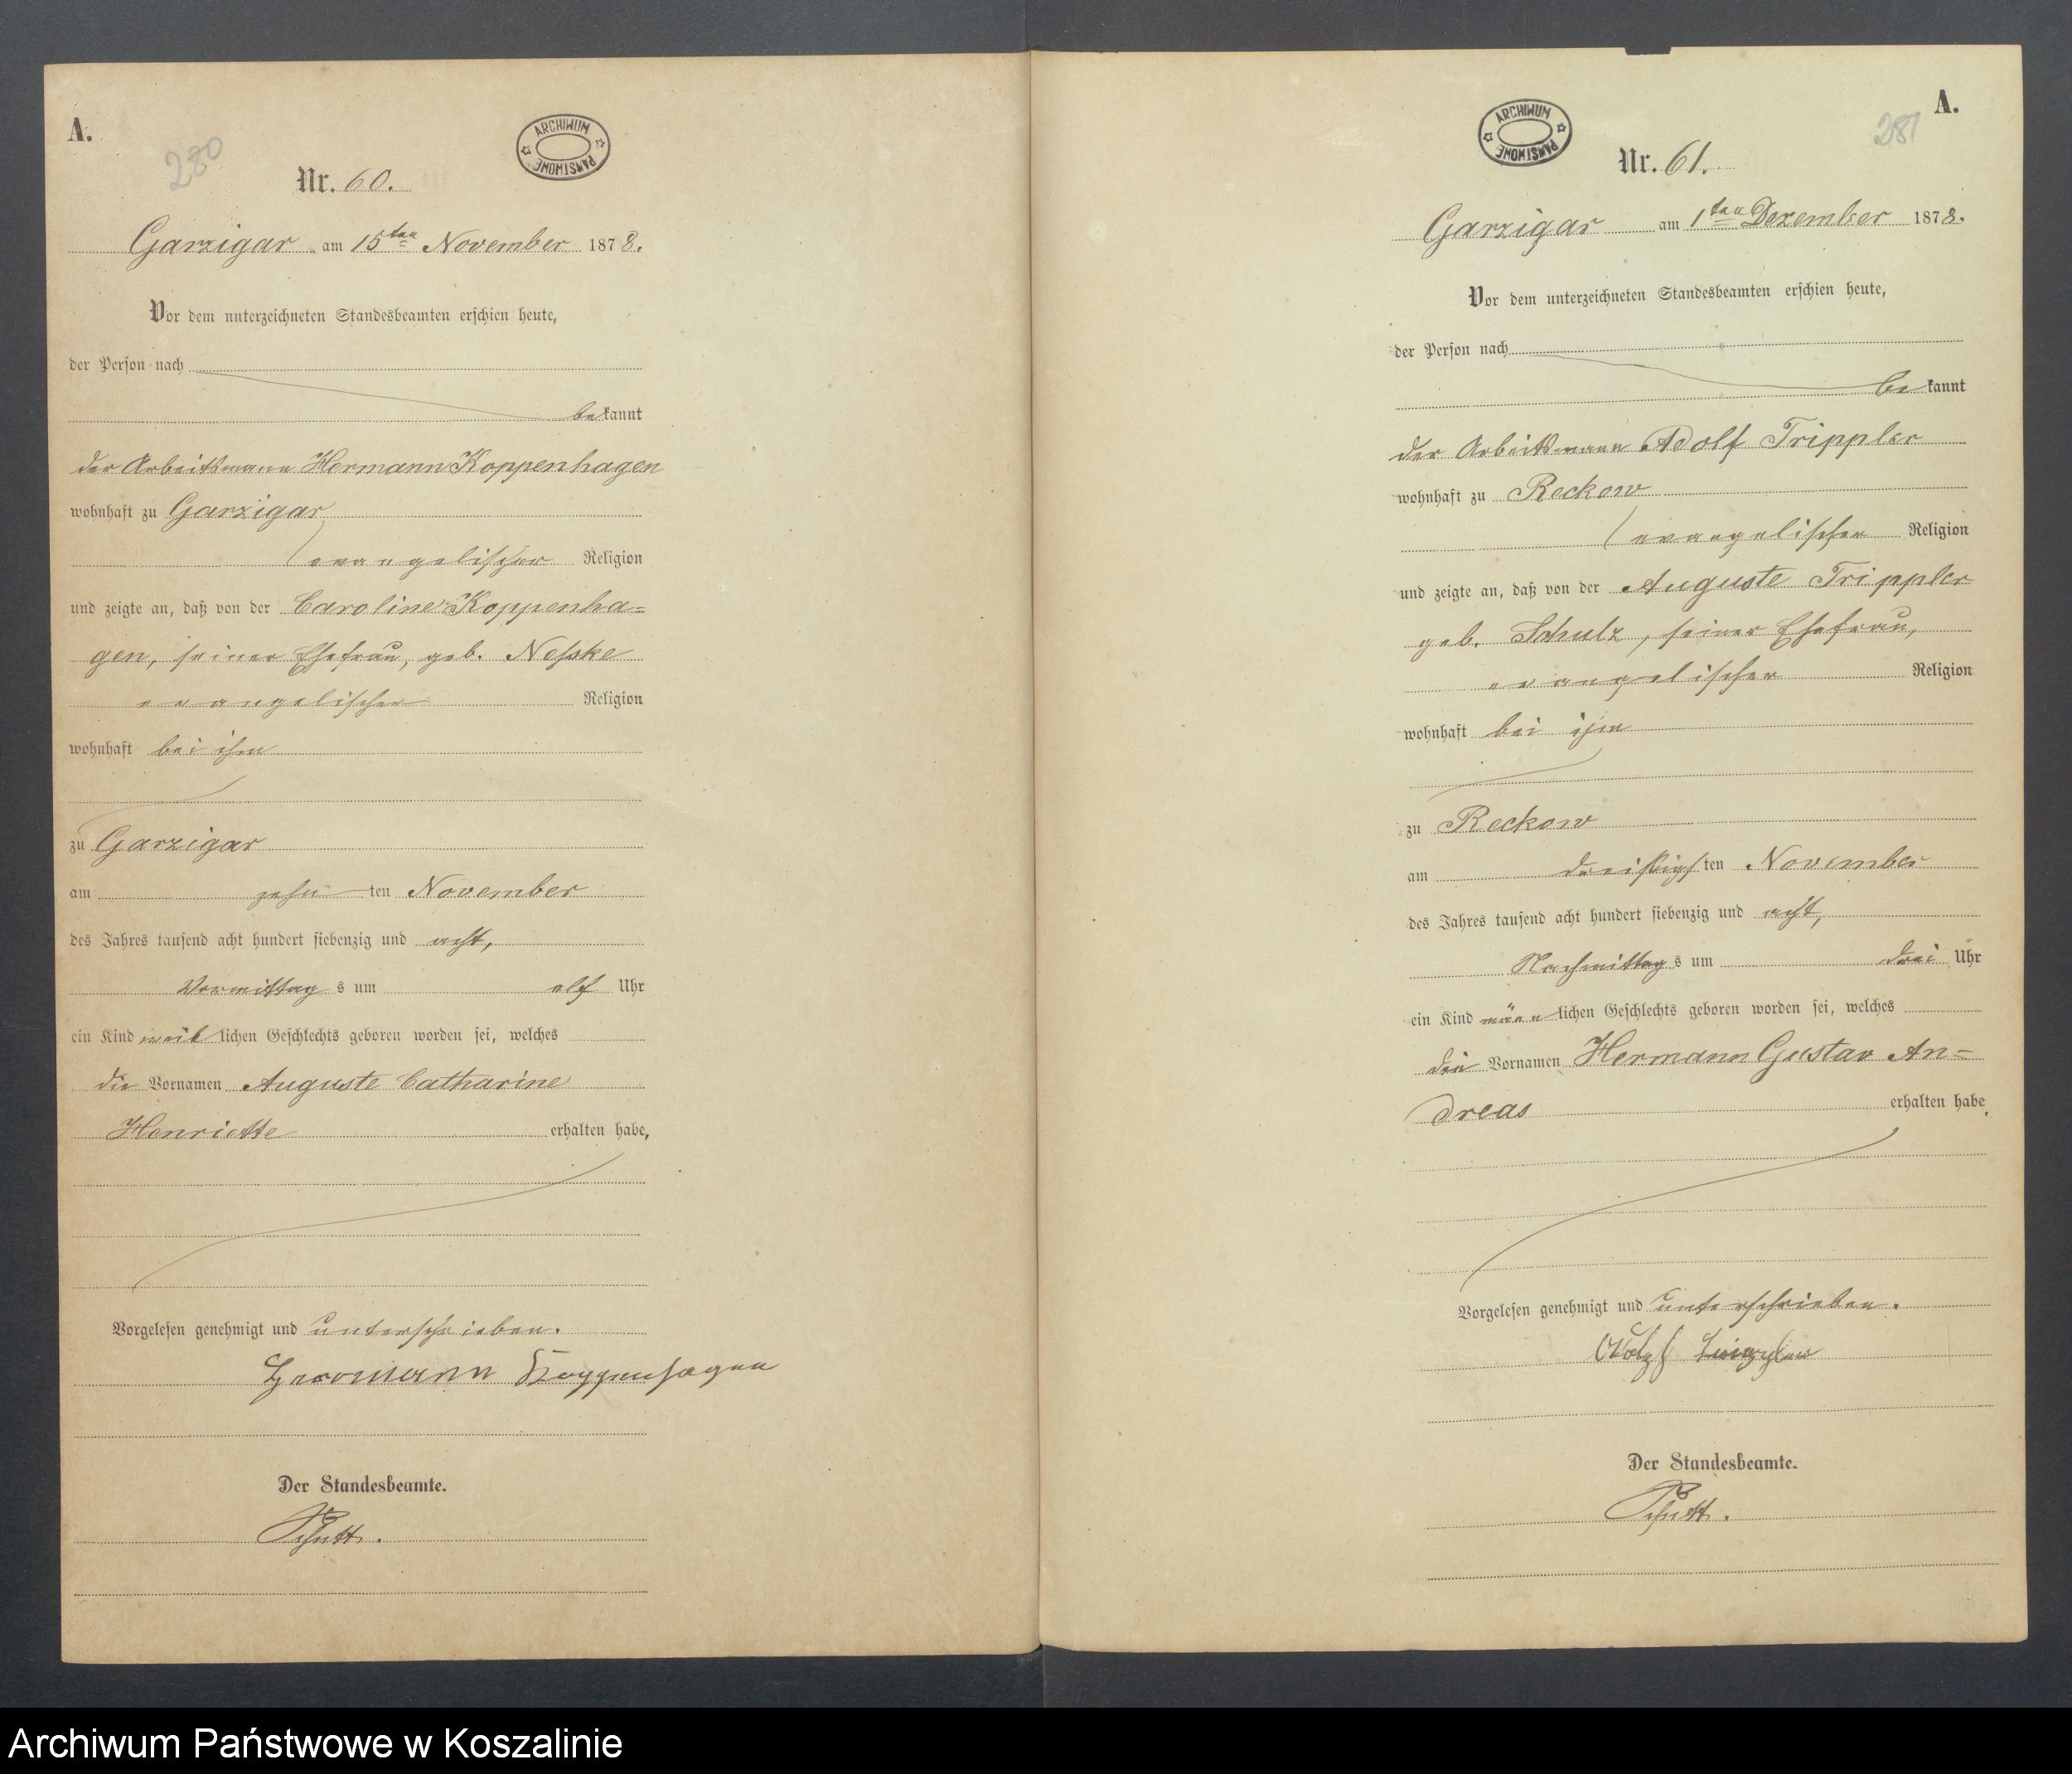 A.
280
ARCHIWUM PAŃSTWOWE
Nr. 60.
Garzigar am 15ten November 1878.
Vor dem unterzeichneten Standesbeamten erschien heute,
der Person nach
bekannt
der Arbeitsmann Hermann Koppenhagen
wohnhaft zu Garzigar
evangelischer Religion
und zeigte an, daß von der Caroline Koppenha=
gen, seiner Ehefrau, geb. Neßke
evangelischer Religion
wohnhaft bei ihm
zu Garzigar
am zehnten November
des Jahres tausend acht hundert siebenzig und acht,
Vormittags um elf Uhr
ein Kind weiblichen Geschlechts geboren worden sei, welches
die Vornamen Auguste Catharine
Henriette erhalten habe,
Vorgelesen genehmigt und unterschrieben.
Herrmann Koppenhagen
Der Standesbeamte.
A.
281
ARCHIWUM PAŃSTWOWE
Nr. 61.
Garzigar am 1ten Dezember 1878.
Vor dem unterzeichneten Standesbeamten erschien heute,
der Person nach
bekannt
der Arbeitsmann Adolf Trippler
wohnhaft zu Reckow
evangelischer Religion
und zeigte an, daß von der Auguste Trippler
geb. Schulz, seiner Ehefrau,
evangelischer Religion
wohnhaft bei ihm
zu Reckow
am dreißigsten November
des Jahres tausend acht hundert siebenzig und acht,
Nachmittags um drei Uhr
ein Kind männlichen Geschlechts geboren worden sei, welches
die Vornamen Hermann Gustav An=
dreas erhalten habe,
Vorgelesen genehmigt und unterschrieben.
Adolf Trippler
Der Standesbeamte.
Archiwum Państwowe w Koszalinie